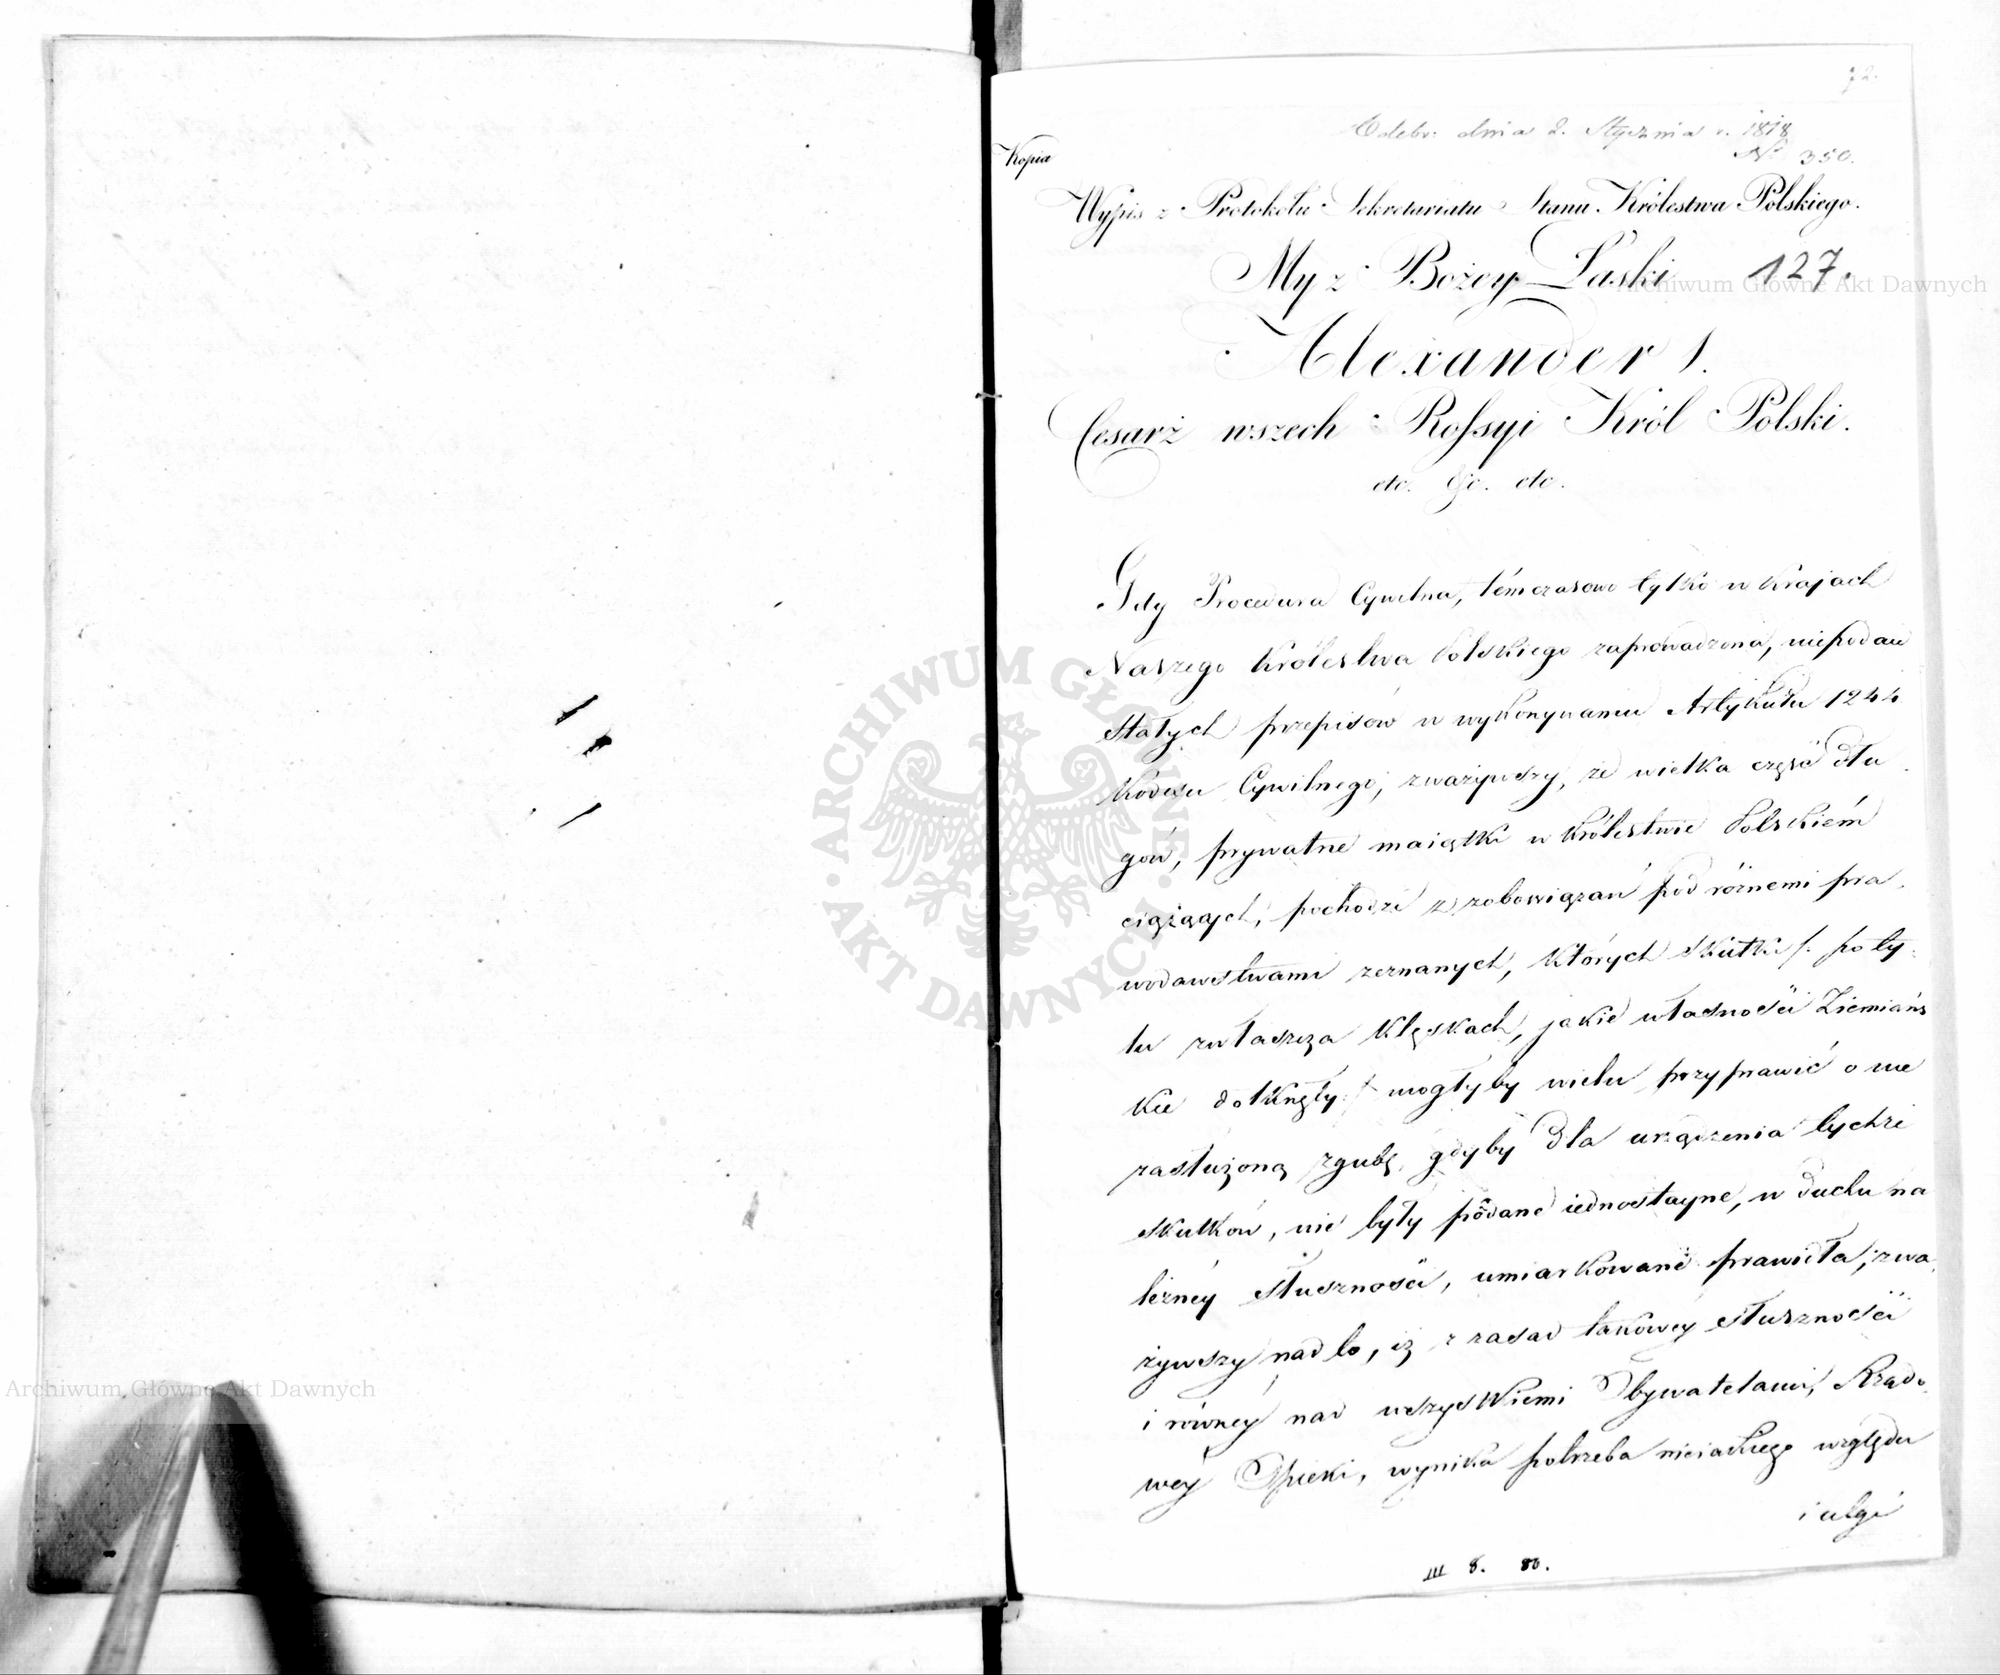 72.
Odebr. dnia 2. Stycznia r. 1818
No 350.
Kopia
Wypis z Protokołu Sekretariatu Stanu Królestwa Polskiego.
My z Bożey Łaski 127.
Archiwum Główne Akt Dawnych
Alexander I.
Cesarz wszech Rossyi Król Polski.
etc. &c. etc.
Gdy Procedura Cywilna, témczasowo tylko w Krajach
Naszego Królestwa Polskiego zaprowadzona, niepodaie
stałych przepisów w wykonywaniu Artykułu 1244
Kodexu Cywilnego; zważywszy, że wielka część dłu
gów, prywatne maiątki w Królestwie Polskiém
ciążących, pochodzi z zobowiązań pod różnemi pra
wodawstwami zeznanych, których skutki /: po ty
lu zwłaszcza klęskach, jakie własności Ziemiańs
kie dotknęły :/ mogłyby wielu przyprawić o nie
zasłużoną zgubę, gdyby dla urządzenia tychże
skutków, nie były podane iednostayne, w duchu na
leżnéy słuszności, umiarkowane prawidła; zwa
żywszy nadto, iż z zasad takowey słuszności
i równey nad wszystkiemi Obywatelami, Rządo
wey Opieki, wynika potrzeba nieiakiego względu
i ulgi
III 8. 80.
ARCHIWUM GŁÓWNE AKT DAWNYCH
Archiwum Główne Akt Dawnych